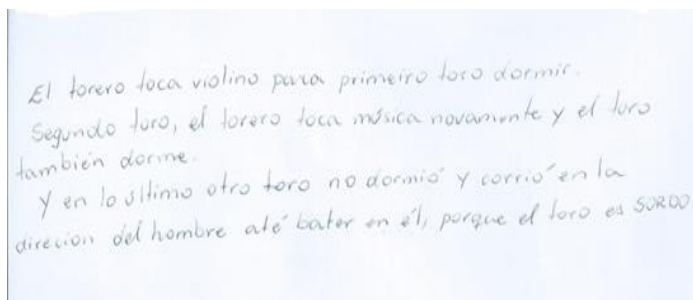 El torero toca violino para primeiro toro dormir.
Segundo toro, el torero toca música novamente y el toro
también dorme.
Y en lo último otro toro no dormió y corrió en la
direcion del hombre até bater en él, porque el toro es SORDO